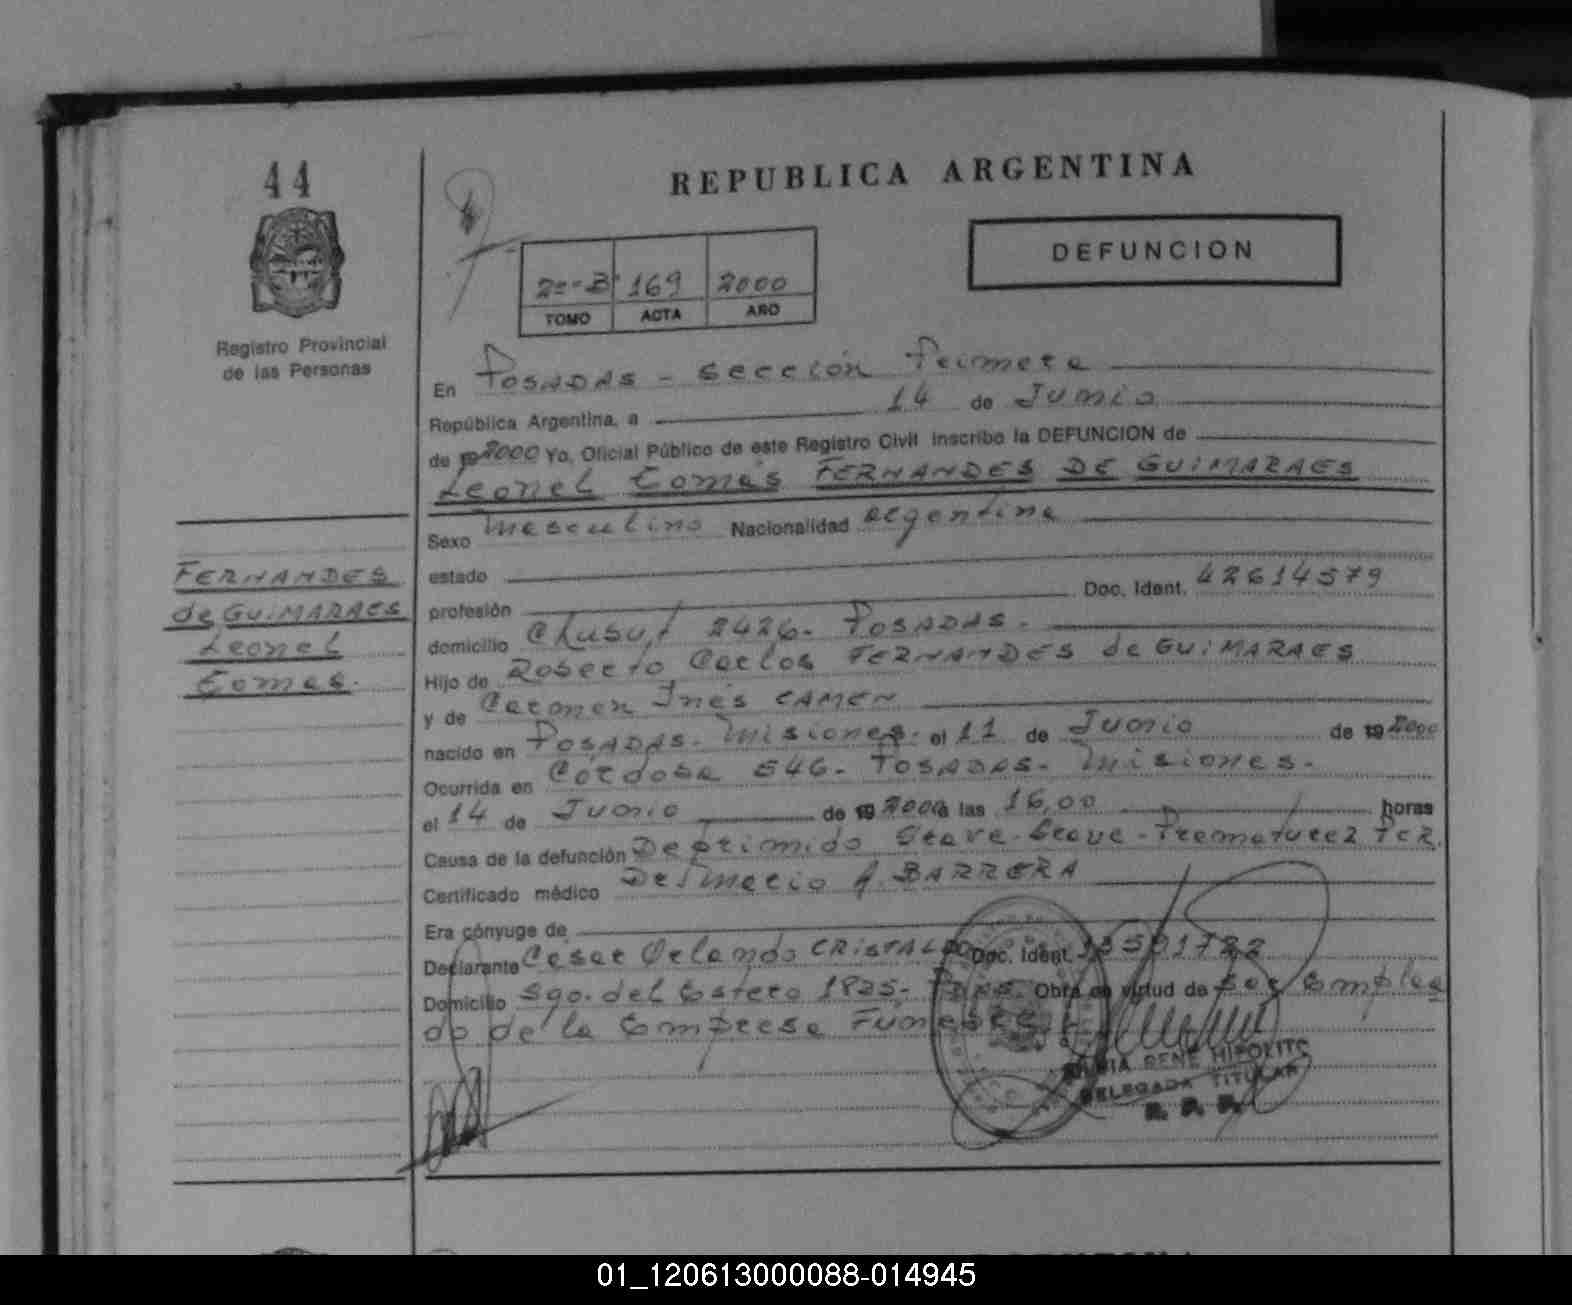 44
REPUBLICA ARGENTINA
DEFUNCION
2º-B 169 2000
TOMO ACTA AÑO
Registro Provincial
de las Personas
En POSADAS - Sección Primera
República Argentina, a 14 de Junio
de 2000 Yo, Oficial Público de este Registro Civil inscribo la DEFUNCION de
Leonel Tomás FERNANDES DE GUIMARAES
Sexo masculino Nacionalidad argentina
estado
profesión Doc. Ident. 42614579
domicilio Chubut 2426- POSADAS.
Hijo de Roberto Carlos FERNANDES de GUIMARAES
y de Carmen Inés CAMEN
nacido en POSADAS- Misiones- el 11 de Junio de 19 2000
Ocurrida en Córdoba 546- POSADAS- Misiones.
el 14 de Junio de 19 2000 a las 16,00 horas
Causa de la defunción Deprimido Grave-Grave-Prematurez
Certificado médico Delmacio A. BARRERA
Era cónyuge de
Declarante César Orlando CRISTALDO Doc. Ident. 13591722
Domicilio Sgo. del Estero 1825- Pdas. Obra en virtud de ser Emplea
do de la Empresa Funebre
FERNANDES
de GUIMARAES
Leonel
Tomás.
RENE HIPOLITO
DELEGADA TITULAR
R. P. P.
01_120613000088-014945